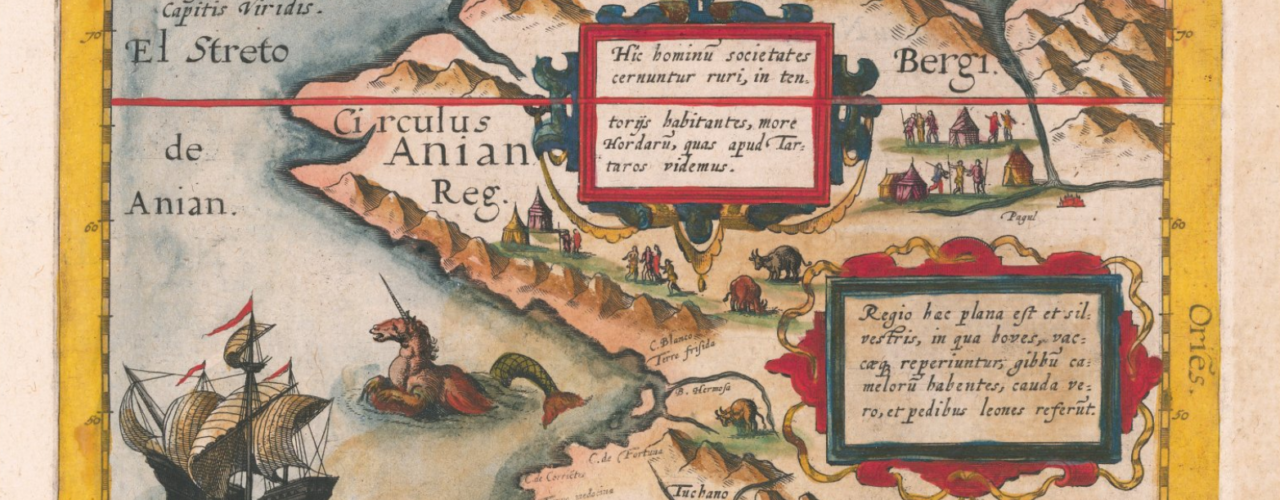 Capitis Viridis.
70
El Streto
de
Anian.
60
50
Circulus
Anian
Reg.
Hic hominū societates
cernuntur ruri, in ten-
torijs habitantes, more
Hordarū, quas apud Tar-
taros videmus.
Bergi.
70
Pagul
60
Oriēs
50
Regio hac plana est et sil-
vestris, in qua boves, vac-
cæq reperiuntur, gibbū ca-
melorū habentes, cauda ve-
ro, et pedibus leones referūt.
C. Blanco
Terra frisida
B. Hermosa
C. de Fortuna
C. de Corriẽtes
Tuchano